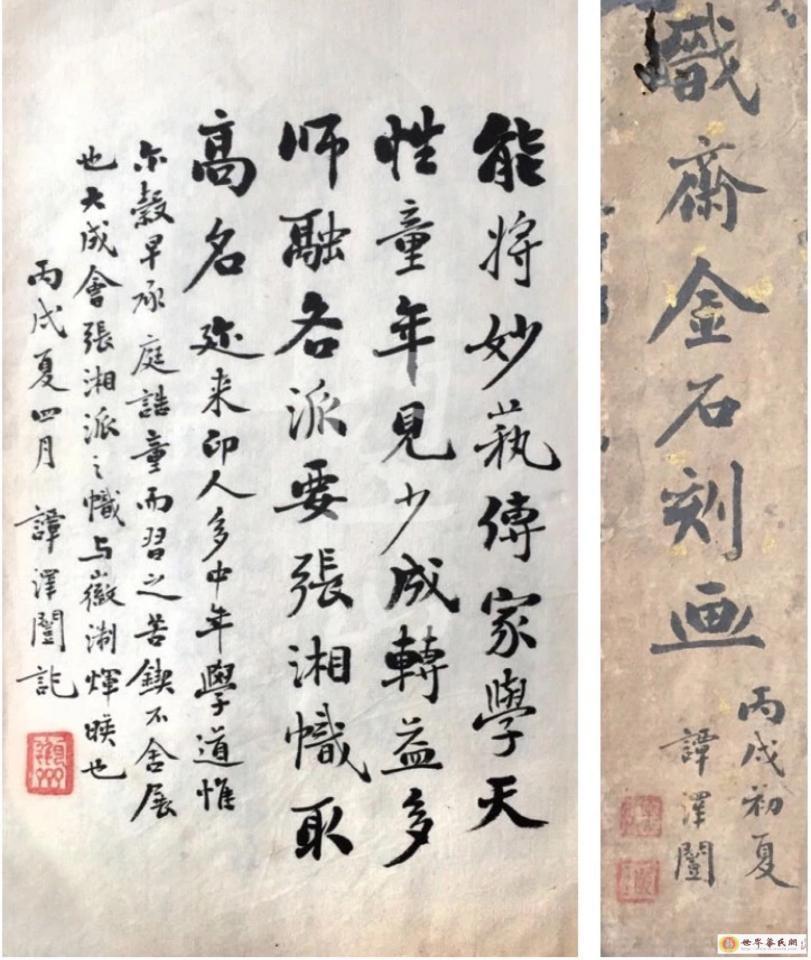 能将妙蓺傳家學天
性童年見少成轉益多
師融各派要張湘幟取
高名 迩来印人多中年學道惟
尔穀早承庭誥童而習之苦鍥不舍展
也大成會張湘派之幟与徽淛煇暎也
丙戌夏四月 譚澤闓記
幟齋金石刻画
丙戌初夏
譚澤闓